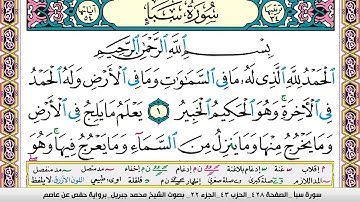 سُورَةُ سَبَإٍ
بِسْمِ ٱللَّهِ ٱلرَّحْمَٰنِ ٱلرَّحِيمِ
ٱلْحَمْدُ لِلَّهِ ٱلَّذِى لَهُۥ مَا فِى ٱلسَّمَٰوَٰتِ وَمَا فِى ٱلْأَرْضِ وَلَهُ ٱلْحَمْدُ
فِى ٱلْءَاخِرَةِ ۚ وَهُوَ ٱلْحَكِيمُ ٱلْخَبِيرُ ١ يَعْلَمُ مَا يَلِجُ فِى ٱلْأَرْضِ
وَمَا يَخْرُجُ مِنْهَا وَمَا يَنزِلُ مِنَ ٱلسَّمَآءِ وَمَا يَعْرُجُ فِيهَا ۚ وَهُوَ
سورة سبأ _الصفحة ٤٢٨_الحزب ٤٣_الجزء ٢٢_ بصوت الشيخ محمد جبريل_برواية حفص عن عاصم